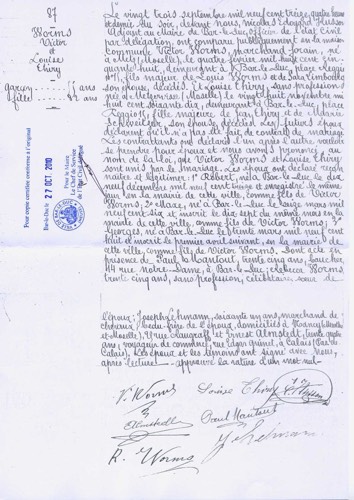 87
Worms
Victor
et
Louise
Thiry
garçon 55 ans
fille 42 ans
Pour copie certifiée conforme à l'original
Bar-le-Duc le 27 OCT 2010
Pour le Maire
Le Chef de Service
Le vingt trois septembre mil neuf cent treize, quatre heures
du soir, devant nous,
Adjoint au Maire de Bar-le-Duc, officier de l'état civil
par délégation, ont comparu publiquement en la maison
commune Victor Worms, marchand forain, né
à Metz (Moselle), le quatre février mil huit cent cin-
quante huit, demeurant à Bar-le-Duc, place Reggio
n° 11, fils majeur de Louis Worms et de Sara
son épouse, décédés. Et Louise Thiry, sans profession
née à le vingt huit novembre mil
huit cent soixante dix, demeurant à Bar-le-Duc, place
Reggio 11, fille majeure de Jean Thiry et de Marie
son épouse, décédés. Les futurs époux
déclarent qu'il n'a pas été fait de contrat de mariage.
Les contractants ont déclaré l'un après l'autre vouloir
se prendre pour époux et nous avons prononcé au
nom de la loi, que Victor Worms et Louise Thiry
sont unis par le mariage. Les époux ont déclaré recon-
naître et légitimer 1° Robert, né à Bar-le-Duc le dix
neuf décembre mil neuf cent et enregistré le même
jour en la mairie de cette ville, comme fils de Victor
Worms, 2° né à Bar-le-Duc le treize mars mil
neuf cent six et inscrit le dix sept du même mois en la
mairie de cette ville, comme fils de Victor Worms; 3°
Georges, né à Bar-le-Duc le trente mars mil neuf cent
huit et inscrit le premier avril suivant, en la mairie de
cette ville, comme fils de Victor Worms. Dont acte en
présence de Paul trente cinq ans,
44 rue Notre-Dame, à Bar-le-Duc, Worms
trente cinq ans, sans profession, célibataire sœur de
l'époux; Joseph Lehmann, soixante ans, marchand de
chevaux, beau-frère de l'époux, domiciliés à Nancy (Meurthe
et Moselle), rue et Ernest Almstedt, trente
ans, voyageur de commerce, rue Edgar Quinet, à Calais (Pas de
Calais). Les époux et les témoins ont signé avec Nous,
après lecture.
V. Worms Louise Thiry
E. Almstedt Paul
R. Worms J. Lehmann